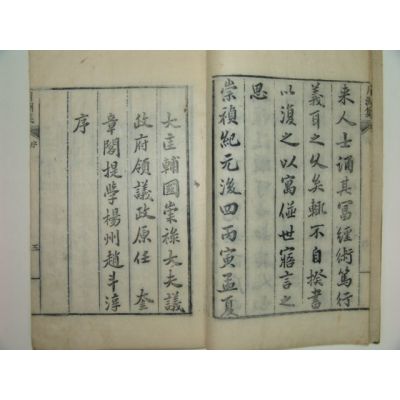 来人士誦其冨經術篤行
義耳之久矣輒不自揆書
以復之以寓傡世寤言之
思
崇禎紀元後四丙寅孟夏
大匡輔國崇祿大夫議
政府領議政原任 奎
章閣提學楊州趙斗淳
序